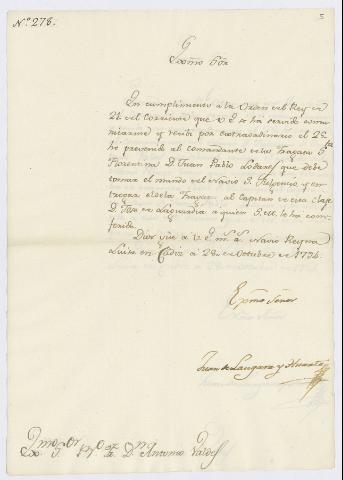 Nº. 278.
Exmo Sor
En cumplimiento a la Orden del Rey de
21 del Corriente que V. E. se ha servido comu-
nicarme y recibi por extraordinario el 28
he prevenido al comandante de la Fragata Sta
Florentina D. Juan Pablo Lodares que debe
tomar el mando del Navio S. Fulgencio y en-
tregar el de la Fragata al Capitan de esta clase
D. Josef de S. M. le ha con-
ferido.
Dios gue a V. E. m. a. Navio Reyna
Luisa en Cadiz a 28 de Octubre de 1794.
Exmo Señor
Juan de Langara y Huarte
Exmo Sor Bo Fr Dn Antonio Valdes